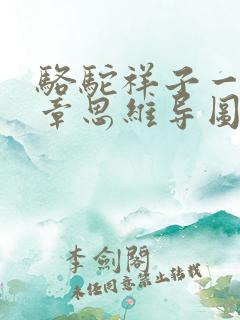 駱駝祥子一
章思維导圖
李劍閣
未经同意禁止转载